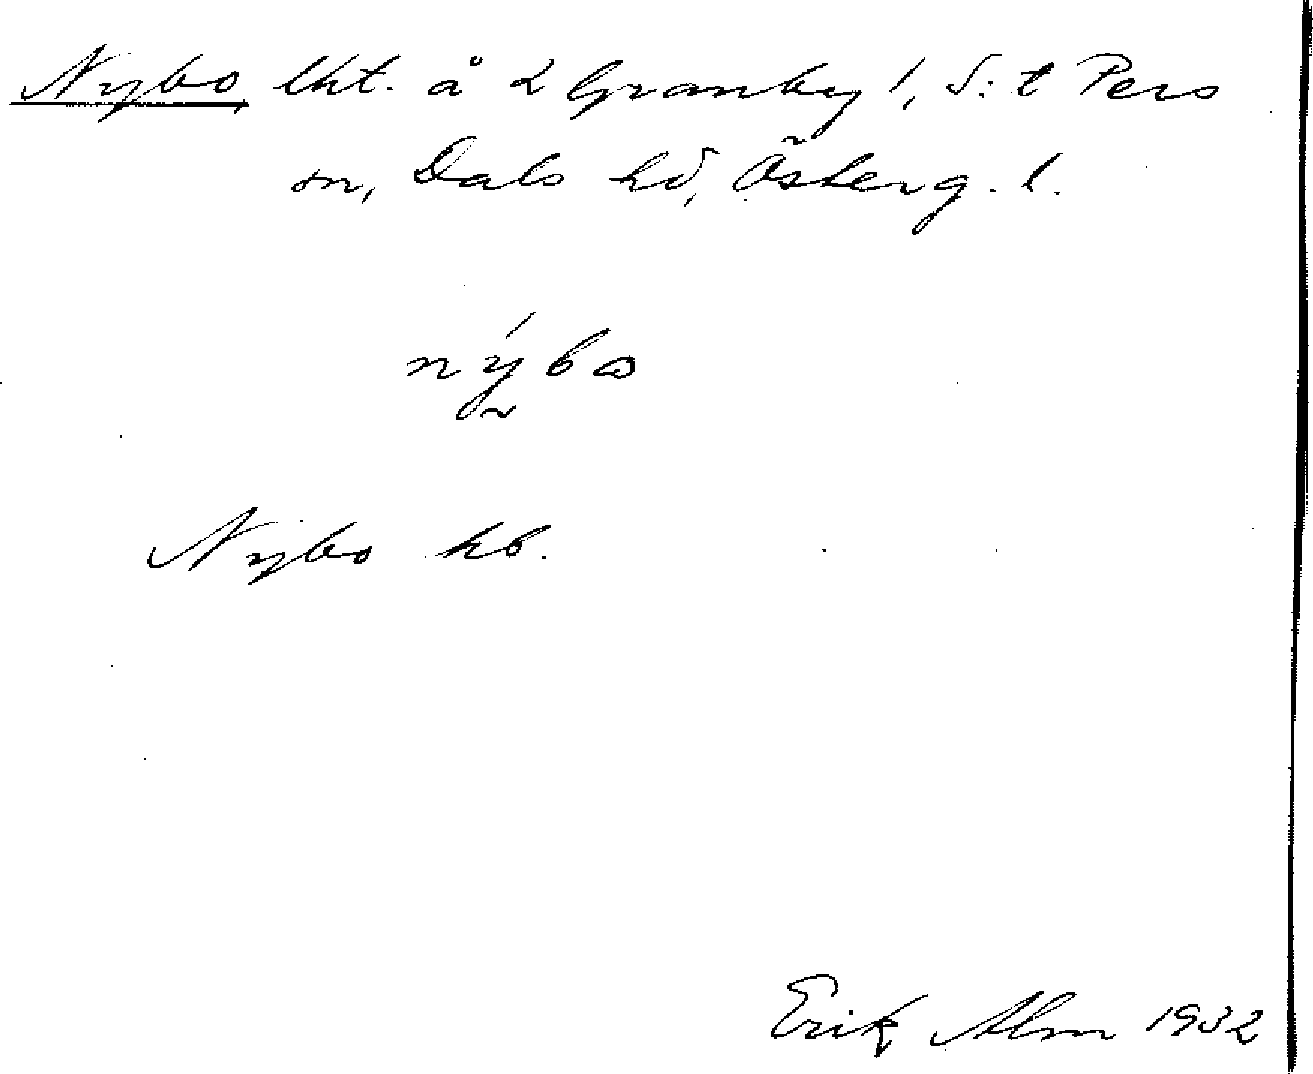 Nybo, lht. å 2 Granby 1, S:t Pers
sn, Dals hd, Österg. l.
nýbω
Nybo kb.
Erik Alm 1932